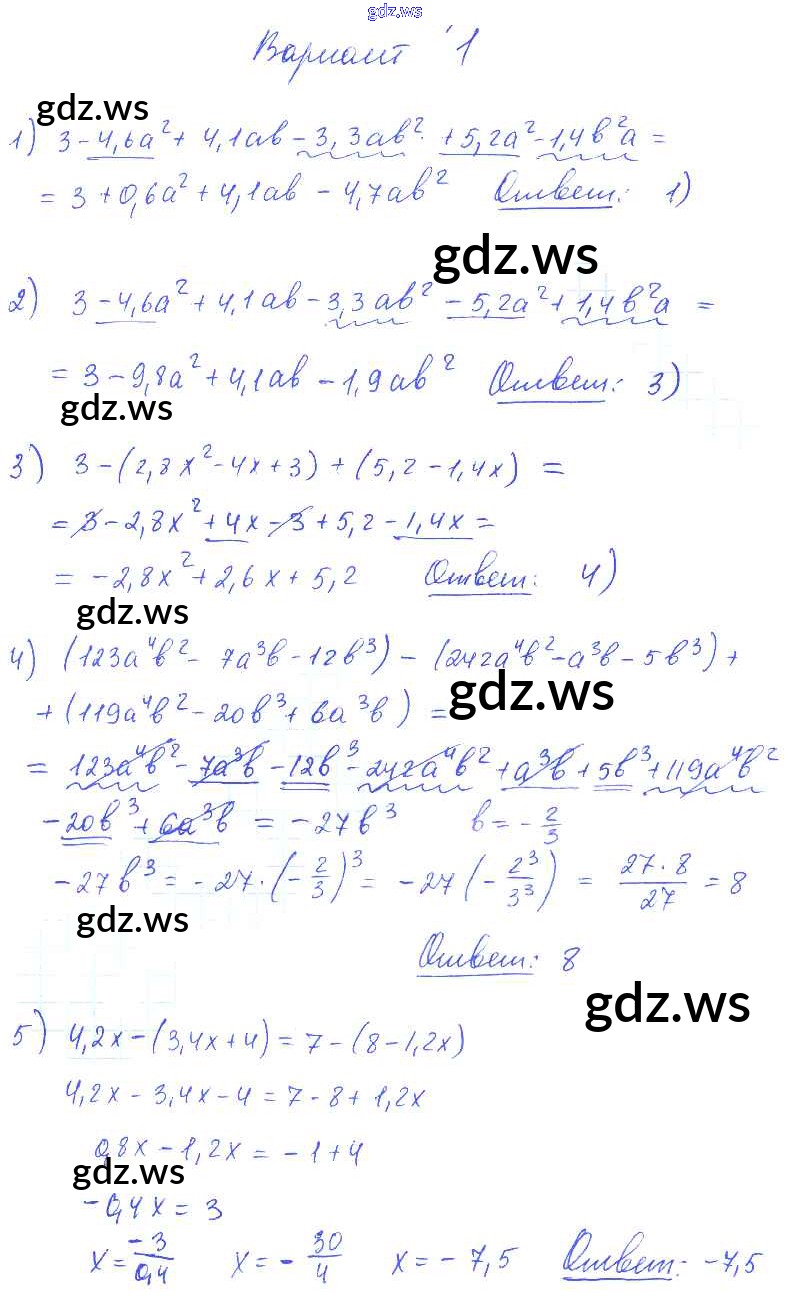 gdz.ws
Вариант 1
gdz.ws
1) 3 - 4,6a² + 4,1ab - 3,3ab² + 5,2a² - 1,4b²a =
= 3 + 0,6a² + 4,1ab - 4,7ab² Ответ: 1)
gdz.ws
2) 3 - 4,6a² + 4,1ab - 3,3ab² - 5,2a² + 1,4b²a =
= 3 - 9,8a² + 4,1ab - 1,9ab² Ответ: 3)
gdz.ws
3) 3 - (2,8x² - 4x + 3) + (5,2 - 1,4x) =
= 3 - 2,8x² + 4x - 3 + 5,2 - 1,4x =
= -2,8x² + 2,6x + 5,2 Ответ: 4)
gdz.ws
4) (123a⁴b² - 7a³b - 12b³) - (242a⁴b² - a³b - 5b³) +
gdz.ws
+ (119a⁴b² - 20b³ + 6a³b) =
= 123a⁴b² - 7a³b - 12b³ - 242a⁴b² + a³b + 5b³ + 119a⁴b²
- 20b³ + 6a³b = -27b³ b = -2/3
-27b³ = -27·(-2/3)³ = -27(-2³/3³) = 27·8/27 = 8
gdz.ws
Ответ: 8
gdz.ws
5) 4,2x - (3,4x + 4) = 7 - (8 - 1,2x)
4,2x - 3,4x - 4 = 7 - 8 + 1,2x
0,8x - 1,2x = -1 + 4
gdz.ws
-0,4x = 3
x = -3/0,4 x = -30/4 x = -7,5 Ответ: -7,5